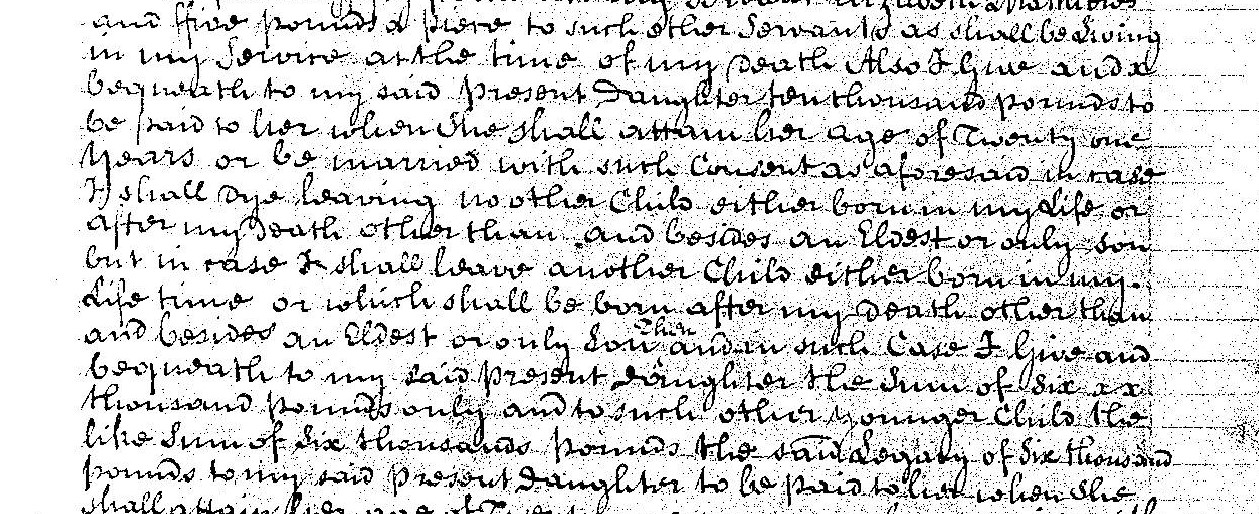 and ffive pounds a piece to such other Servants as shall be Living
in my Service at the time of my Death Also I Give and x
bequeath to my said Present Daughter ten thousand pounds to
be paid to her when She shall attain her age of Twenty one
Years or be married with such Consent as aforesaid in case
I shall Dye leaving no other Child either born in my Life or
after my Death other than and besides an Eldest or only Son
but in case I shall leave another Child either born in my
Life time or which shall be born after my Death other than
and besides an Eldest or only Son Then and in such Case I Give and
bequeath to my said Present Daughter the Sum of Six xx
thousand Pounds only and to such other younger Child the
like Sum of Six thousands Pounds the said Legacy of Six thousand
pounds to my said Present Daughter to be paid to her when She
shall attain her age of